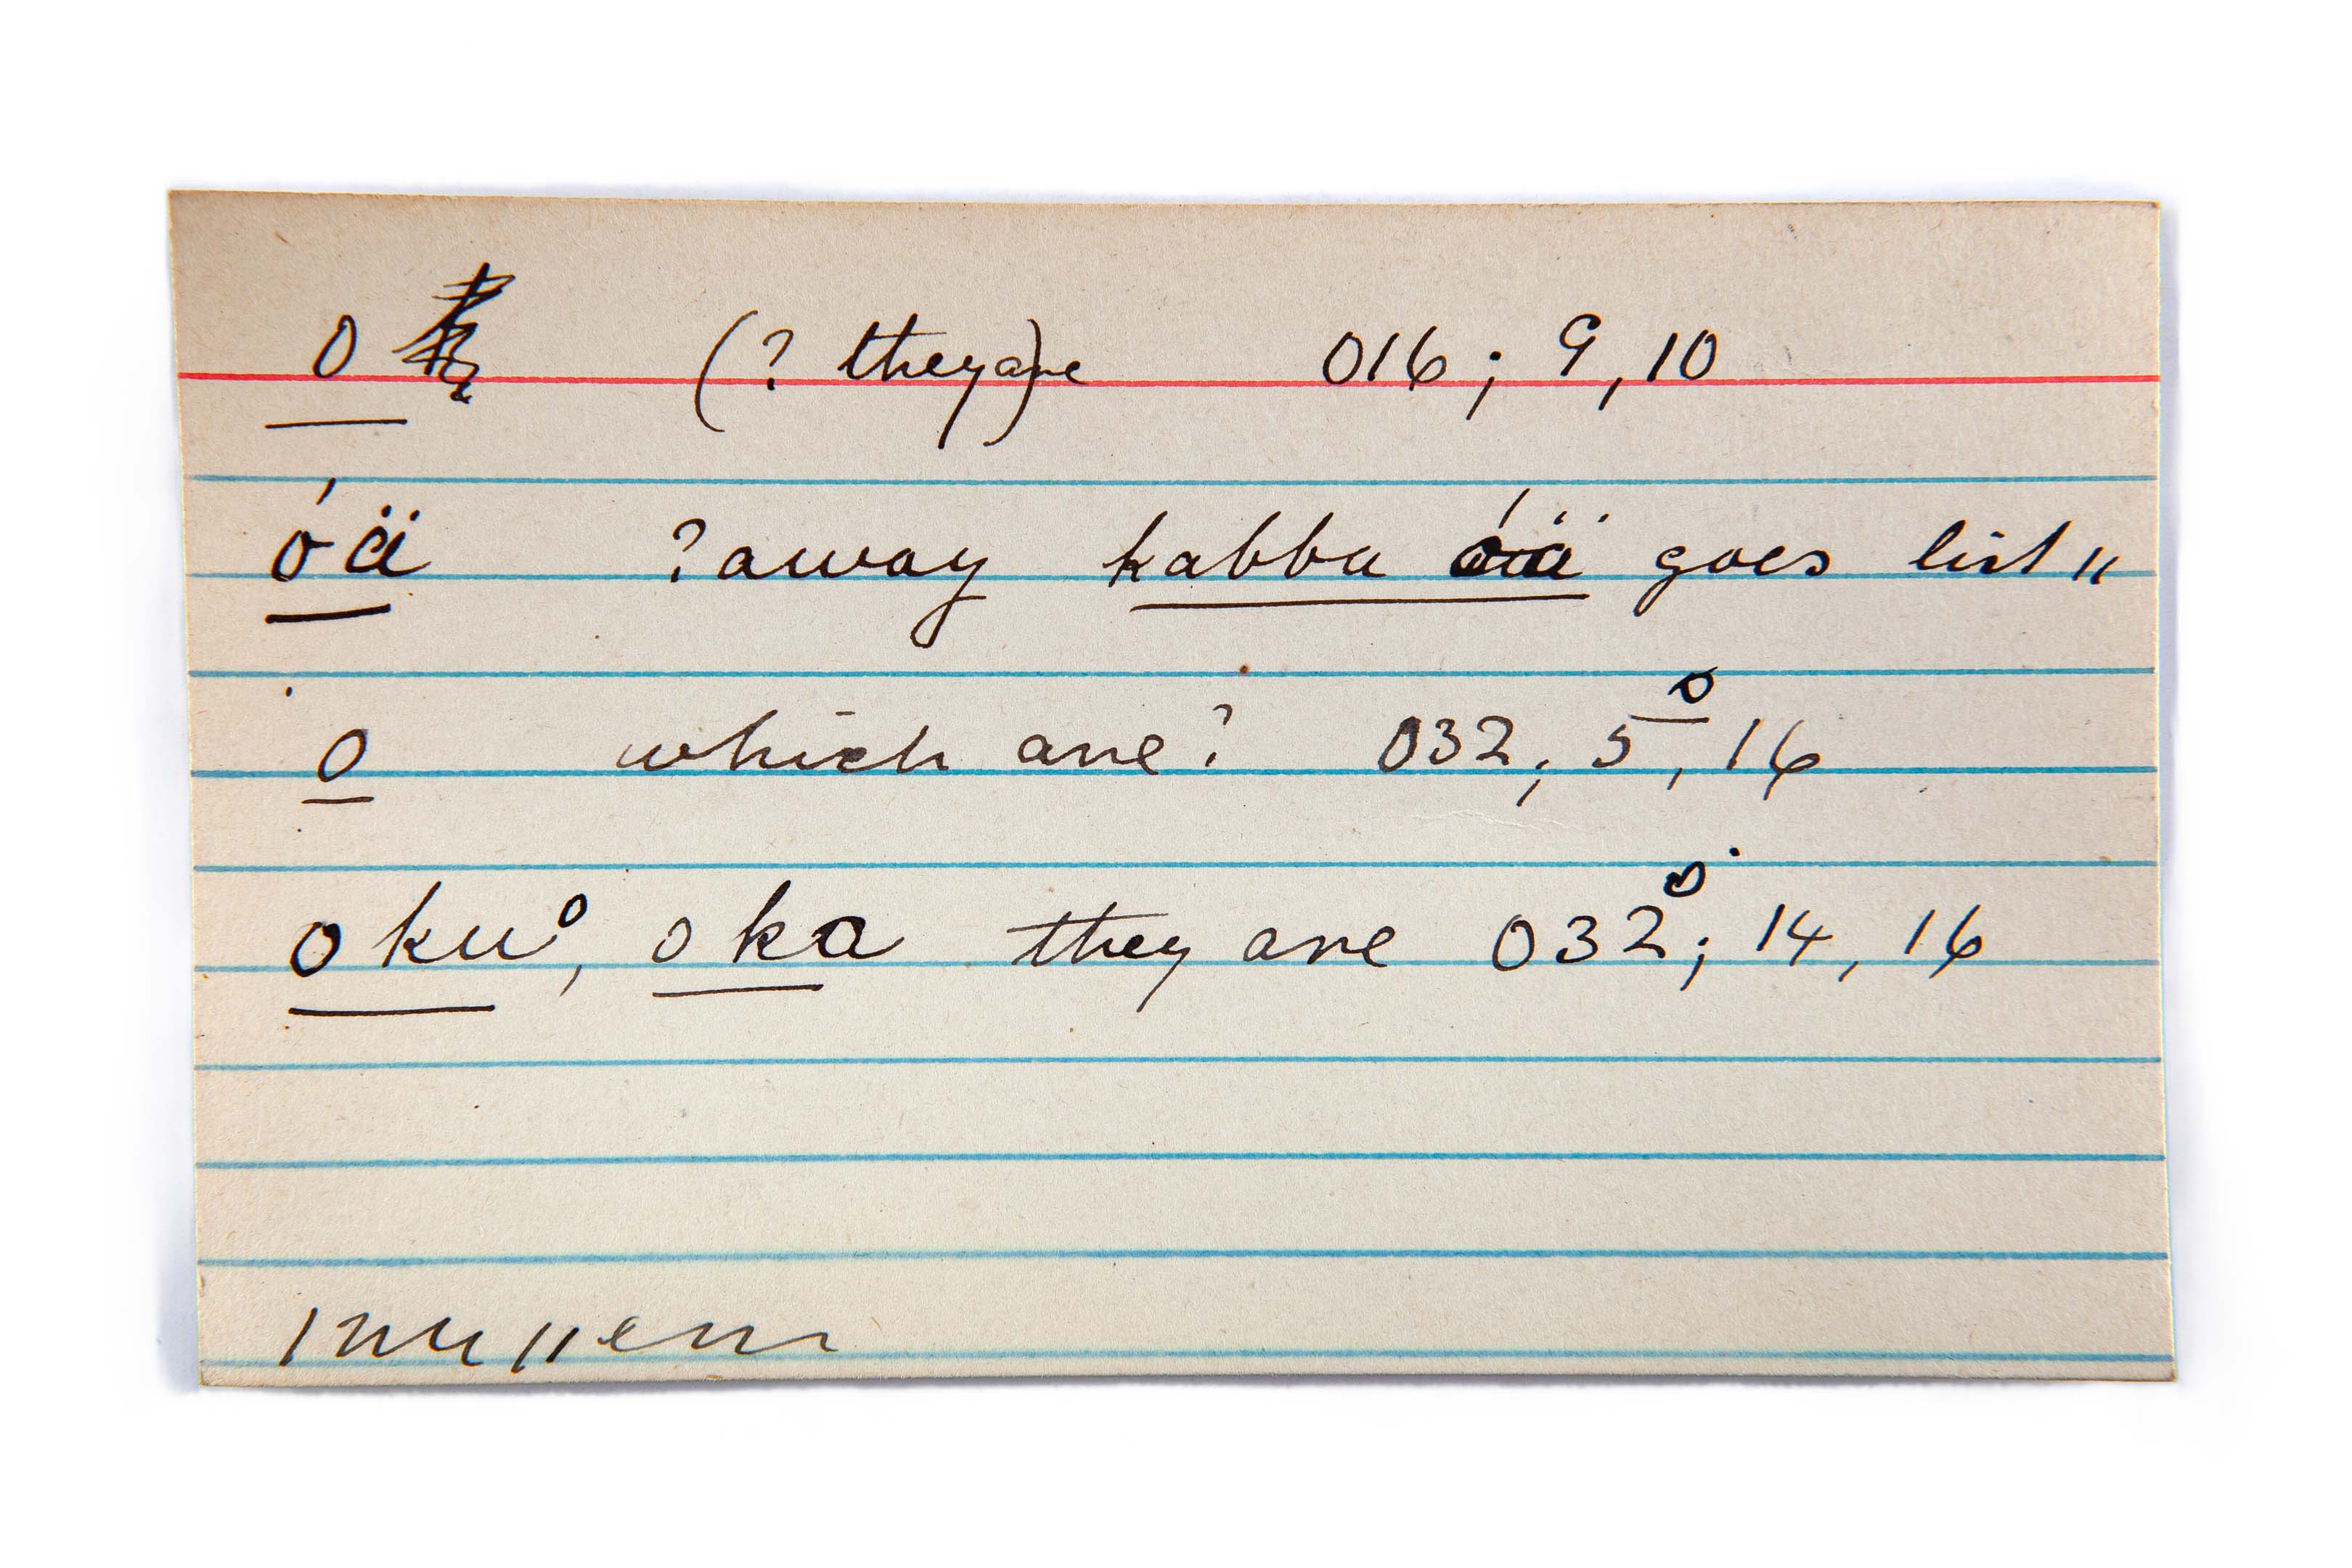 o (? they are) 016; 9, 10
óä ?away kabba óä goes list "
o which are? 032; 5o, 16
okuo, oka they are 032o; 14, 16